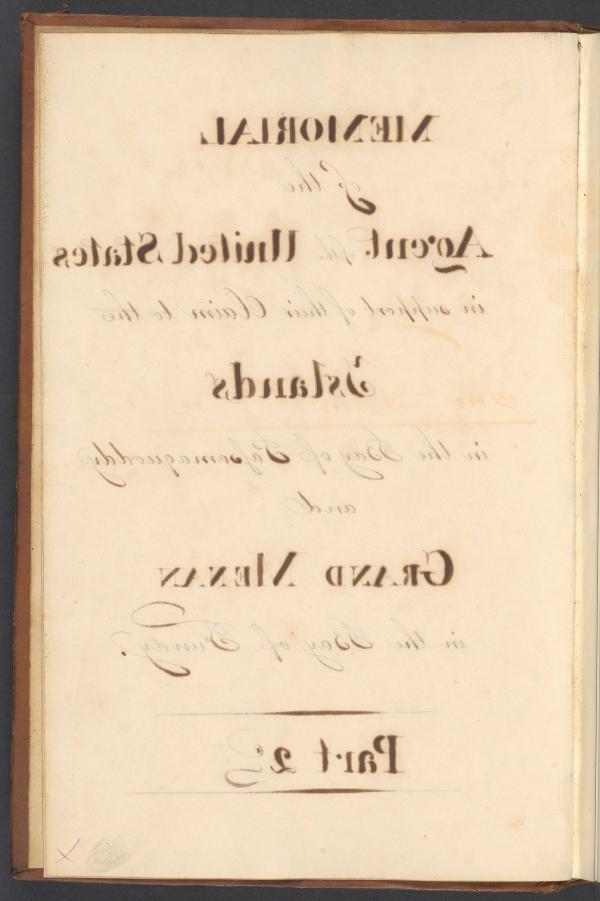 MEMORIAL
of the
Agent of the United States
in support of their Claim to the
Islands
in the Bay of Passamaquoddy
and
GRAND MENAN
in the Bay of Fundy.
Part 2d